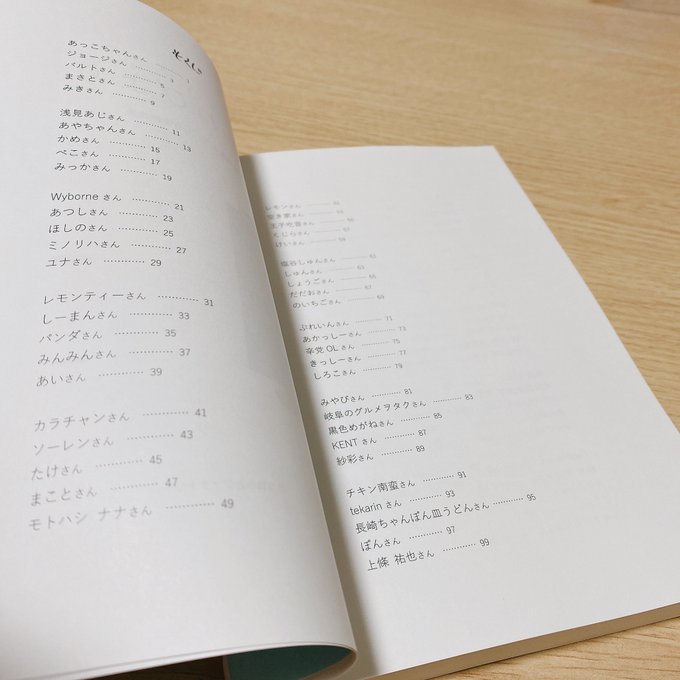 もくじ
あっこちゃんさん ………… 1
ジョージさん ………… 3
バルトさん ………… 5
まさとさん ………… 7
みきさん ………… 9
浅見あじさん ………… 11
あやちゃんさん ………… 13
かめさん ………… 15
ぺこさん ………… 17
みっかさん ………… 19
Wyborne さん ………… 21
あつしさん ………… 23
ほしのさん ………… 25
ミノリハさん ………… 27
ユナさん ………… 29
レモンティーさん ………… 31
しーまんさん ………… 33
パンダさん ………… 35
みんみんさん ………… 37
あいさん ………… 39
カラチャンさん ………… 41
ソーレンさん ………… 43
たけさん ………… 45
まことさん ………… 47
モトハシ ナナさん ………… 49
レモンさん ………… 51
空き家さん ………… 53
王子吃音さん ………… 55
くじらさん ………… 57
けいさん ………… 59
塩谷しゅんさん ………… 61
しゅんさん ………… 63
しょうごさん ………… 65
だだおさん ………… 67
のいちごさん ………… 69
ぷれいんさん ………… 71
あかっしーさん ………… 73
辛党 OLさん ………… 75
きっしーさん ………… 77
しろこさん ………… 79
みやびさん ………… 81
岐阜のグルメヲタクさん ………… 83
黒色めがねさん ………… 85
KENT さん ………… 87
紗彩さん ………… 89
チキン南蛮さん ………… 91
tekarin さん ………… 93
長崎ちゃんぽん皿うどんさん ………… 95
ぽんさん ………… 97
上條 祐也さん ………… 99